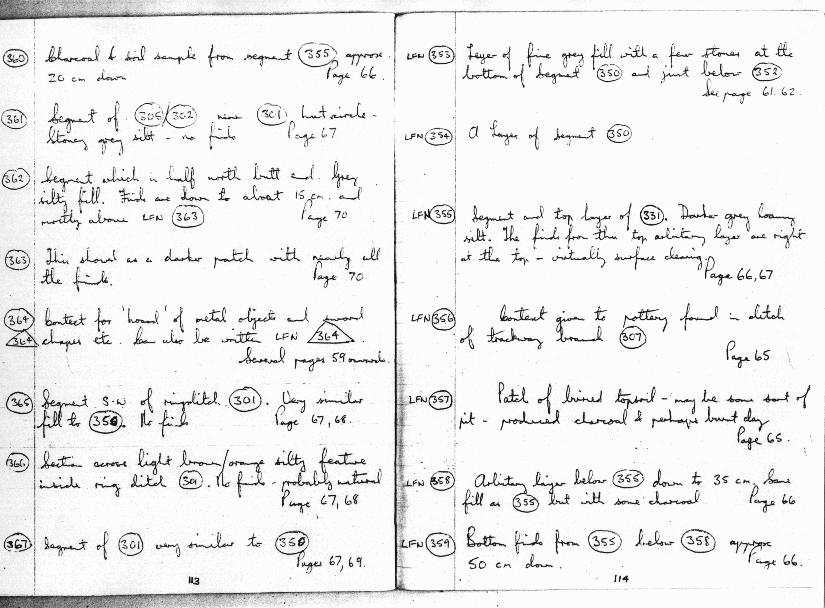 360 Charcoal & soil sample from segment 355 approx.
20 cm down Page 66.
361 Segment of 305/302 near 301 hut circle -
Stoney grey silt - no finds Page 67
362 Segment which is half north butt end. Grey
silty fill. Finds are down to about 15 cm. and
mostly above LFN 363 Page 70
363 This showed as a darker patch with nearly all
the finds. Page 70
364 Context for 'hoard' of metal objects and sword
364 chapes etc. Can also be written LFN 364
Several pages 59 onwards.
365 Segment S-W of ringditch 301. Very similar
fill to 350. No finds Page 67, 68.
366 Section across light brown/orange silty feature
inside ring ditch 301. No finds - probably natural
Page 67, 68
367 Segment of 301 very similar to 350
Pages 67, 69.
113
LFN 353 Layer of fine grey fill with a few stones at the
bottom of Segment 350 and just below 352
See page 61. 62.
LFN 354 A Layer of Segment 350
LFN 355 Segment and top layer of 331. Darker grey loamy
silt. The finds from this top arbitary layer are right
at the top - virtually surface cleaning.
Page 66, 67
LFN 356 Context given to pottery found in ditch
of trackway around 307
Page 65
LFN 357 Patch of burned topsoil - may be some sort of
pit - produced charcoal & perhaps burnt clay
Page 65.
LFN 358 Arbitary layer below 355 down to 35 cm. Same
fill as 355 but with some charcoal Page 66
LFN 359 Bottom finds from 355 below 358 approx
50 cm down. Page 66.
114